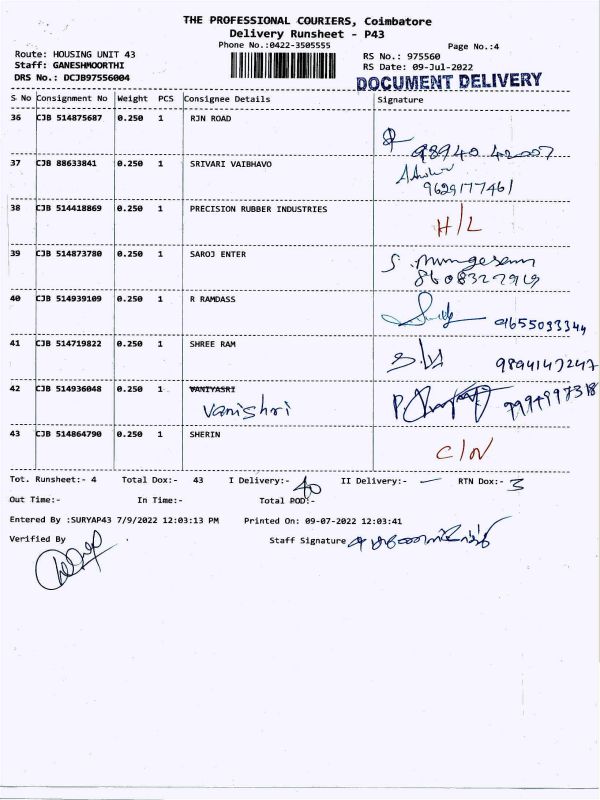 THE PROFESSIONAL COURIERS, Coimbatore
Delivery Runsheet - P43
Phone No.:0422-3505555
Page No.:4
Route: HOUSING UNIT 43
RS No.: 975560
Staff: GANESHMOORTHI
RS Date: 09-Jul-2022
DRS No.: DCJB97556004
DOCUMENT DELIVERY
S No Consignment No Weight PCS Consignee Details Signature
36 CJB 514875687 0.250 1 RJN ROAD
98940 42007
37 CJB 88633841 0.250 1 SRIVARI VAIBHAVO
9629177461
38 CJB 514418869 0.250 1 PRECISION RUBBER INDUSTRIES H/L
39 CJB 514873780 0.250 1 SAROJ ENTER S. Murugesan
8608327919
40 CJB 514939109 0.250 1 R RAMDASS 9655093344
41 CJB 514719822 0.250 1 SHREE RAM 9894147247
42 CJB 514936048 0.250 1 VANIYASRI
Vanishri
43 CJB 514864790 0.250 1 SHERIN C/N
Tot. Runsheet:- 4 Total Dox:- 43 I Delivery:- 40 II Delivery:- — RTN Dox:- 3
Out Time:- In Time:- Total POD:-
Entered By :SURYAP43 7/9/2022 12:03:13 PM Printed On: 09-07-2022 12:03:41
Verified By Staff Signature